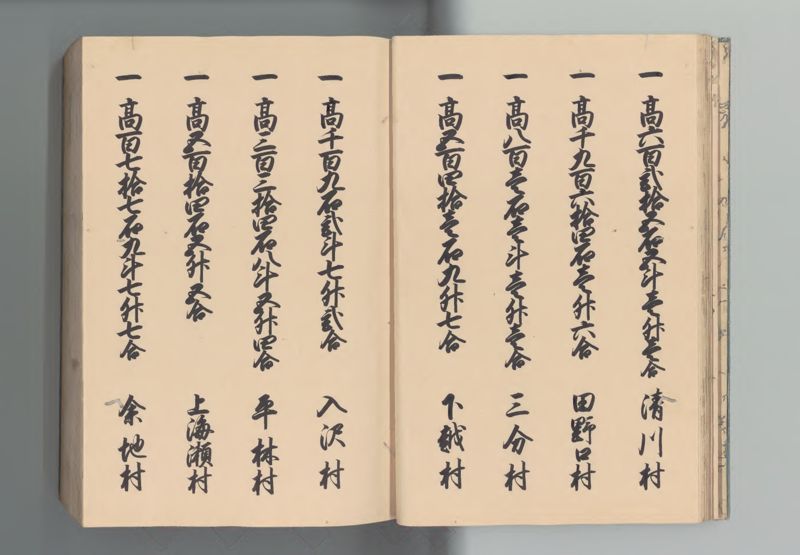 一 高六百弐拾五石五斗壱升壱合 清川村
一 高千九百六拾四石壱升六合 田野口村
一 高八百壱石壱斗壱升壱合 三分村
一 高五百四拾壱石九升七合 下越村
一 高千百九石弐斗七升弐合 入沢村
一 高三百三拾四石八斗五升四合 平林村
一 高五百拾四石五升五合 上海瀬村
一 高百七拾七石九斗七升七合 余地村